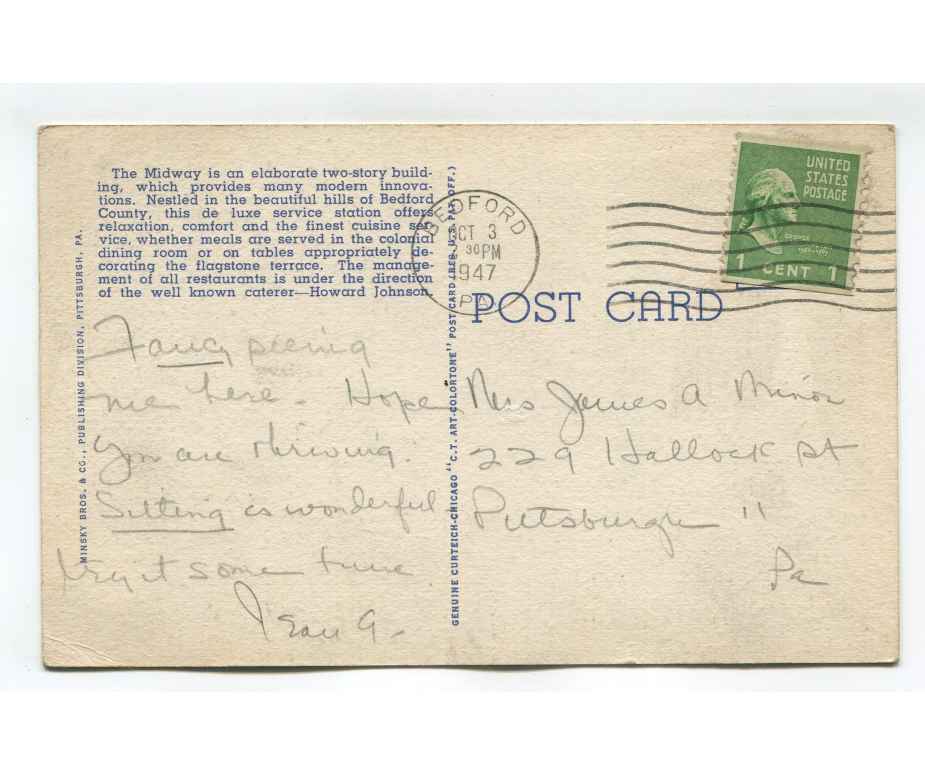 The Midway is an elaborate two-story build-
ing, which provides many modern innova-
tions. Nestled in the beautiful hills of Bedford
County, this de luxe service station offers
relaxation, comfort and the finest cuisine ser-
vice, whether meals are served in the colonial
dining room or on tables appropriately de-
corating the flagstone terrace. The manage-
ment of all restaurants is under the direction
of the well known caterer—Howard Johnson.
Fancy seeing
me here. Hope
you are thriving.
Sitting is wonderful
try it some time
Jean G.
MINSKY BROS. & CO., PUBLISHING DIVISION, PITTSBURGH, PA.
GENUINE CURTEICH-CHICAGO "C.T. ART-COLORTONE" POST CARD (REG. U.S. PAT. OFF.)
BEDFORD
OCT 3
30 PM
1947
PA.
UNITED
STATES
POSTAGE
1 CENT 1
POST CARD
Mrs James A Minor
229 Hallock St
Pittsburgh 11
Pa